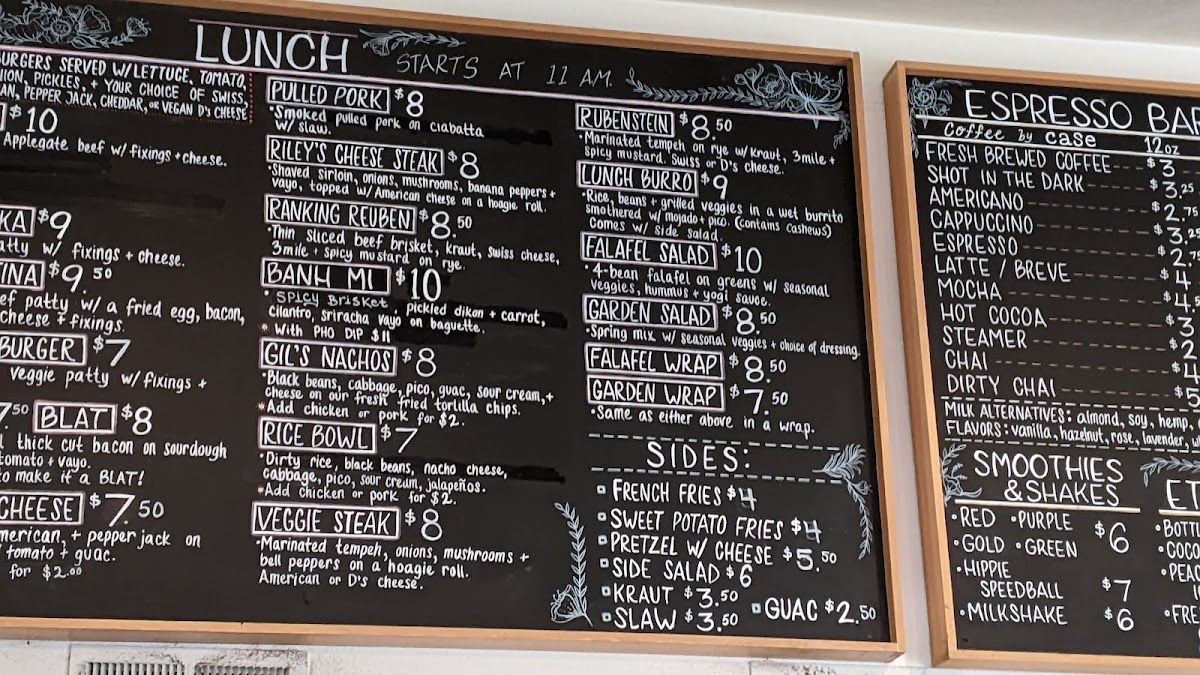 LUNCH STARTS AT 11 AM.
BURGERS SERVED W/LETTUCE, TOMATO,
PICKLES, + YOUR CHOICE OF SWISS,
PEPPER JACK, CHEDDAR, OR VEGAN D'S CHEESE
$10
Applegate beef w/ fixings + cheese.
KA $9
patty w/ fixings + cheese.
TINA $9.50
patty w/ a fried egg, bacon,
cheese + fixings.
BURGER $7
Veggie patty w/ fixings +
7.50 BLAT $8
thick cut bacon on sourdough
tomato + vayo.
to make it a BLAT!
CHEESE $7.50
+ pepper jack on
tomato + guac.
for $2.00
PULLED PORK $8
•Smoked pulled pork on ciabatta
w/ slaw.
RILEY'S CHEESE STEAK $8
•Shaved sirloin, onions, mushrooms, banana peppers +
vayo, topped w/ American cheese on a hoagie roll.
RANKING REUBEN $8.50
•Thin sliced beef brisket, kraut, swiss cheese,
3mile + spicy mustard on rye.
BANH MI $10
•SPICY BRISKET, pickled dikon + carrot,
cilantro, sriracha vayo on baguette.
* WITH PHO DIP $11
GIL'S NACHOS $8
•Black beans, cabbage, pico, guac, sour cream, +
cheese on our fresh fried tortilla chips.
*Add chicken or pork for $2.
RICE BOWL $7
•Dirty rice, black beans, nacho cheese,
cabbage, pico, sour cream, jalapeños.
*Add chicken or pork for $2.
VEGGIE STEAK $8
•Marinated tempeh, onions, mushrooms +
bell peppers on a hoagie roll.
American or D's cheese.
RUBENSTEIN $8.50
•Marinated tempeh on rye w/ kraut, 3mile +
spicy mustard. Swiss or D's cheese.
LUNCH BURRO $9
•Rice, beans + grilled veggies in a wet burrito
smothered w/ mojado + pico. (contains cashews)
Comes w/ side salad
FALAFEL SALAD $10
•4-bean falafel on greens w/ seasonal
veggies, hummus + yogi sauce.
GARDEN SALAD $8.50
•Spring mix w/ seasonal veggies + choice of dressing.
FALAFEL WRAP $8.50
GARDEN WRAP $7.50
•Same as either above in a wrap.
SIDES:
FRENCH FRIES $4
SWEET POTATO FRIES $4
PRETZEL W/ CHEESE $5.50
SIDE SALAD $6
KRAUT $3.50
SLAW $3.50 GUAC $2.50
ESPRESSO BAR
Coffee by case 12oz
FRESH BREWED COFFEE $3
SHOT IN THE DARK $3.25
AMERICANO $2.75
CAPPUCCINO $3.25
ESPRESSO
LATTE / BREVE $4
MOCHA
HOT COCOA $3
STEAMER $2
CHAI $4
DIRTY CHAI $5
MILK ALTERNATIVES: almond, soy, hemp,
FLAVORS: vanilla, hazelnut, rose, lavender,
SMOOTHIES
& SHAKES
•RED •PURPLE $6
•GOLD •GREEN
•HIPPIE
SPEEDBALL $7
•MILKSHAKE $6